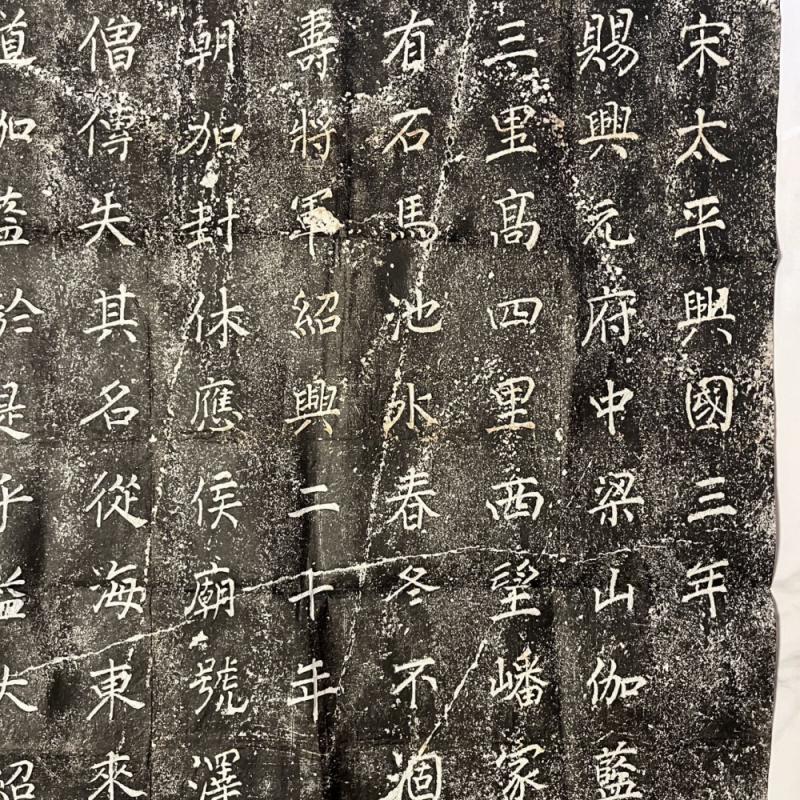 宋太平興國三年
賜興元府中梁山伽藍
三里高四里西望嶓冢
有石馬池水春冬不涸
壽將軍紹興二十年
朝加封休應侯廟號澤
僧傳失其名從海東來
道加益於是乎益大紹